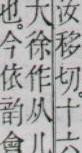 汝移切十六
大徐作从儿
也今依韵會